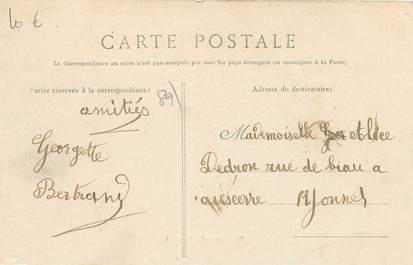 10 €
CARTE POSTALE
La Correspondance au recto n'est pas acceptée par tous les pays étrangers (se renseigner à la Poste)
Partie réservée à la correspondance:
Adresse du destinataire:
amitiés
Georgette
Bertrand
Mademoiselle
Dedron rue de biau a
auscerre Yonne